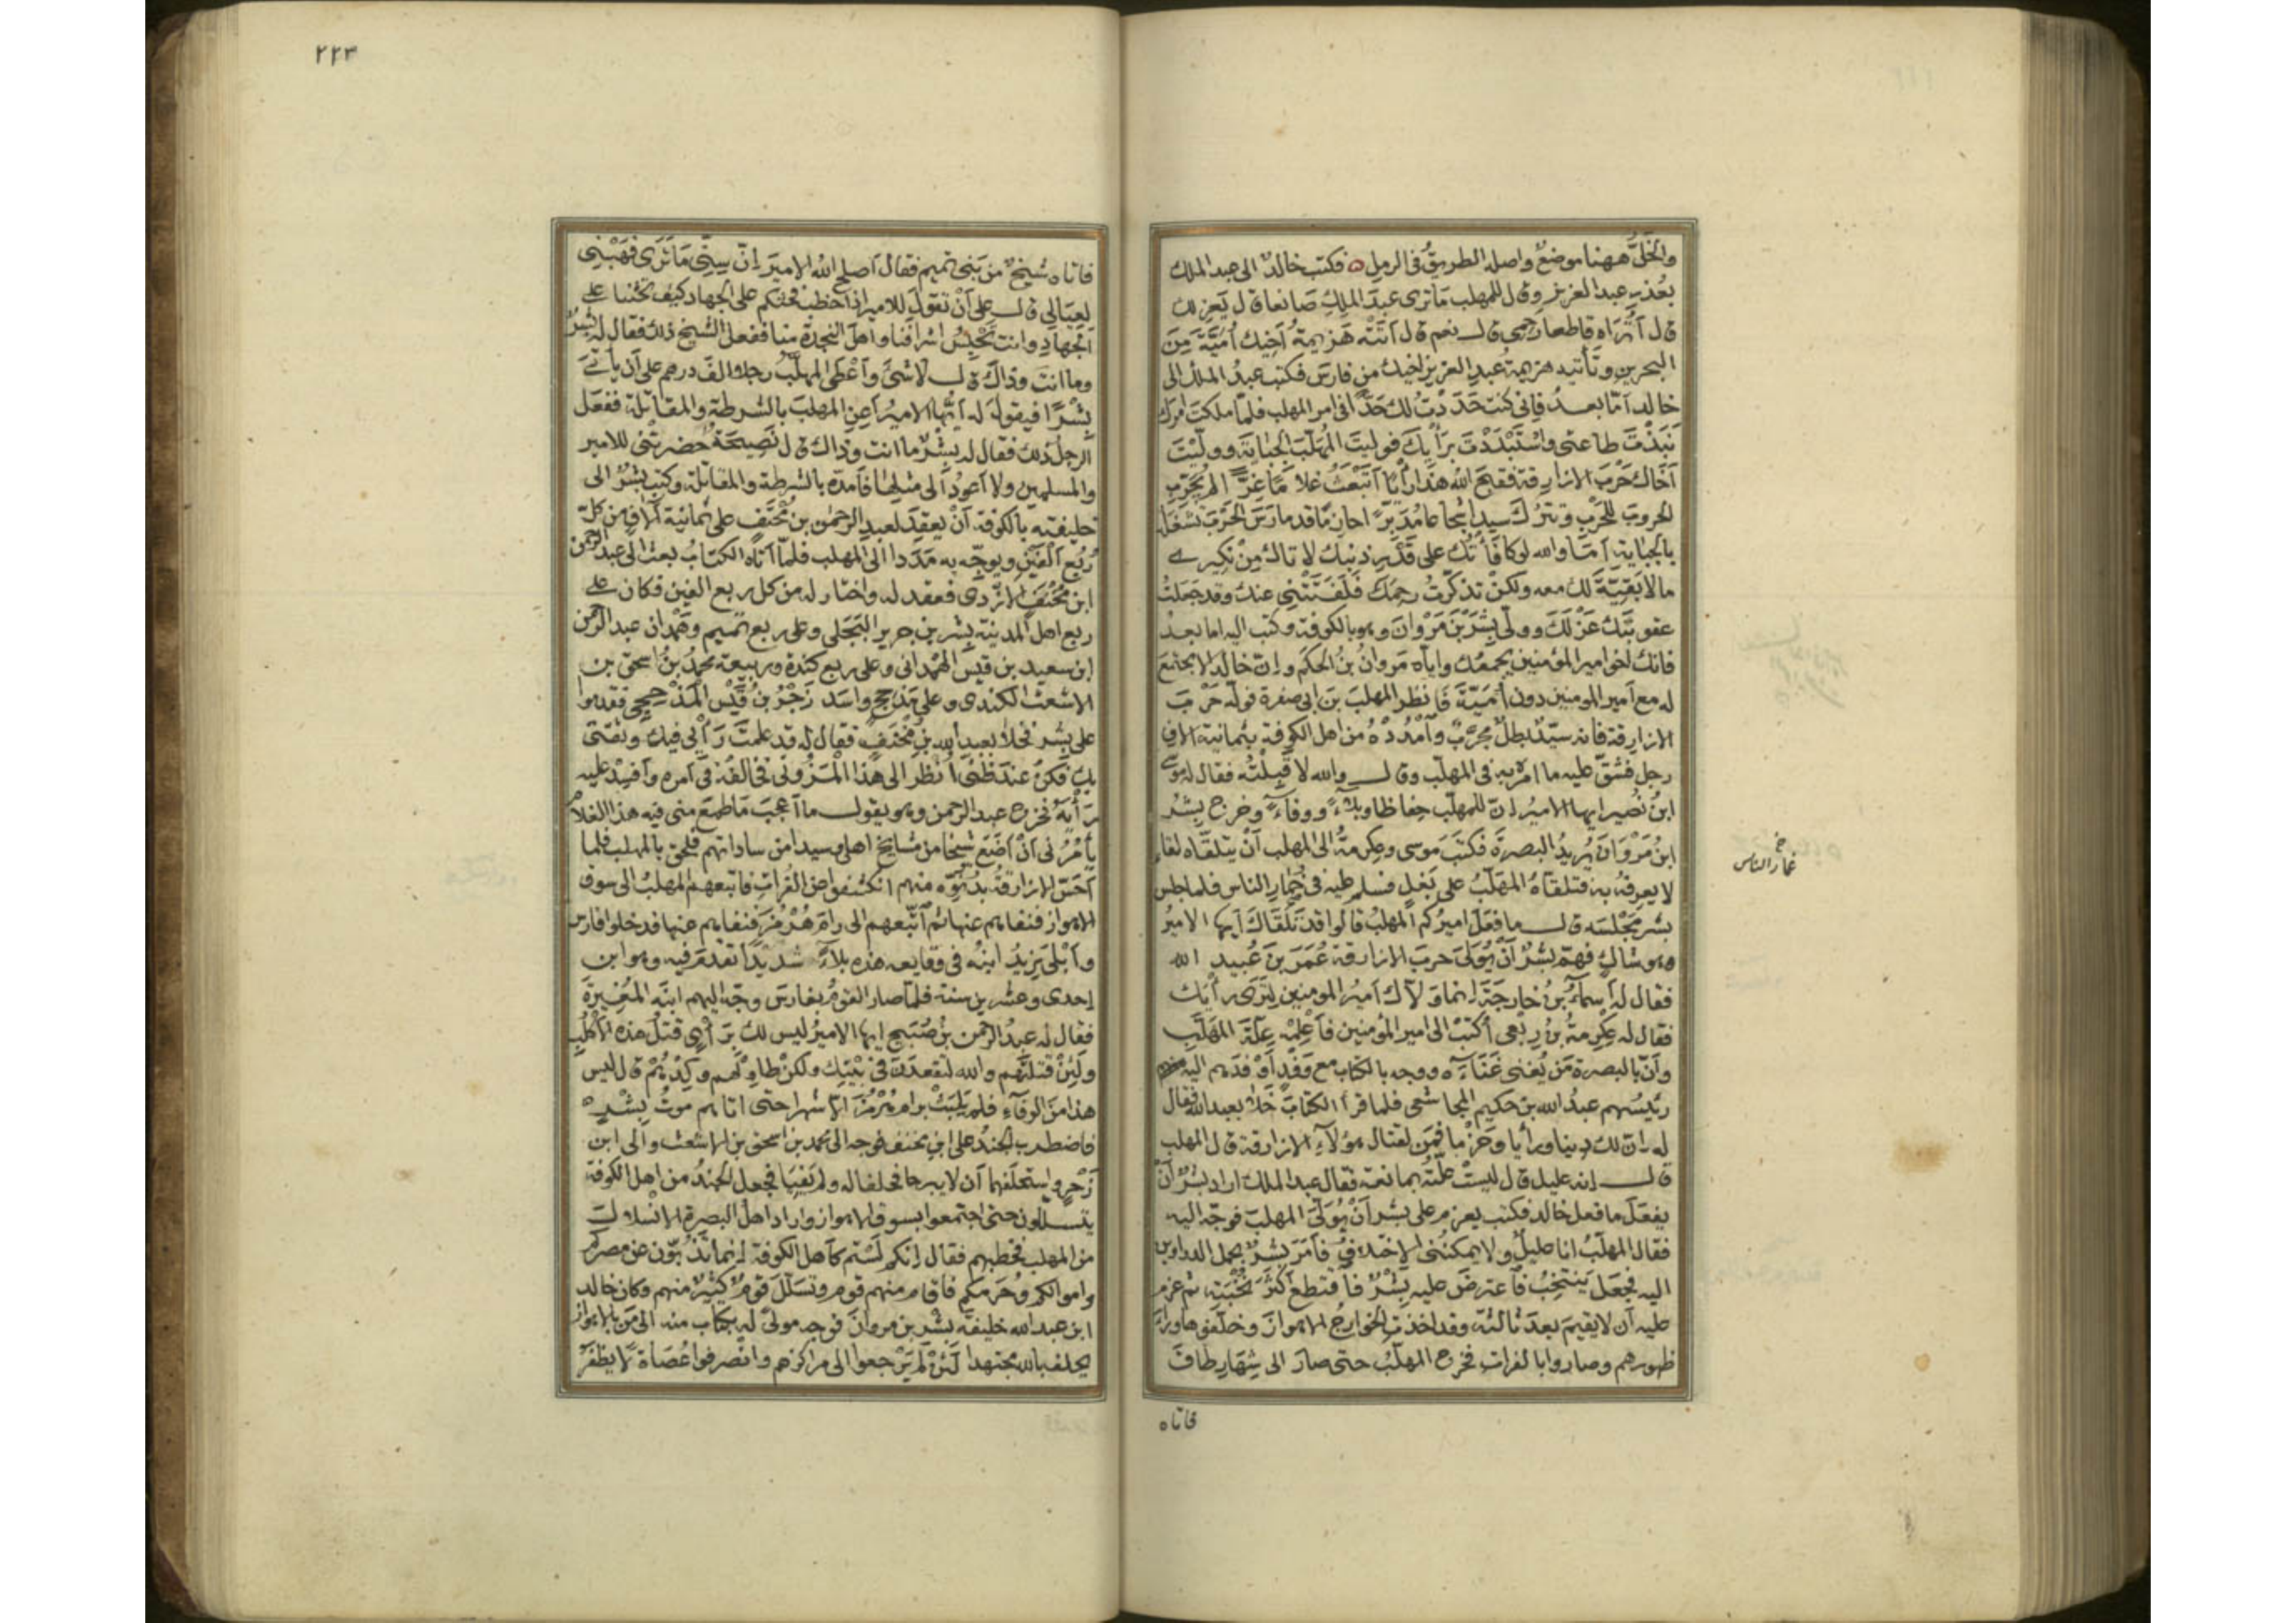 والخل ههنا موضع واصله الطريق في الرمل ه فكتب خالد الى عبد الملك
بعذر عبد العزيز وقال للمهلب ما ترى عبد الملك صانعا قال يعزلك
قال اتراه قاطعا رحمي قال نعم قال اتته هزيمة اخيك امية من
البحرين وتأتيه هزيمة عبد العزيز اخيك من فارس فكتب عبد الملك الى
خالد اما بعد فاني كنت حددت لك حدا في امر المهلب فلما ملكت امرك
نبذت طاعتي واستبددت برأيك فوليت المهلب الجباية ووليت
اخاك حرب الازارقة فقبح الله هذا رأيا اتبعث غلاما غرا لم يجرب
الحروب للحرب وتترك سيدا شجاعا مدبرا حازما قد مارس الحرب تشغله
بالجباية اما والله لو كافأتك على قدر ذنبك لاتاك من نكيري
ما لا بقية لك معه ولكن تذكرت رحمك فلفتتني عنك وقد جعلت
عقوبتك عزلك وولى بشر بن مروان وهو بالكوفة وكتب اليه اما بعد
فانك اخو امير المؤمنين يجمعك واياه مروان بن الحكم وان خالدا لا مجتمع
له مع امير المومنين دون امية فانظر المهلب بن ابي صفرة فوله حرب
الازارقة فانه سيد بطل مجرب وامدده من اهل الكوفة بثمانية الاف
رجل فشق عليه ما امره به في المهلب وقال والله لاقتلنه فقال له موسى
ابن نصير ايها الامير ان للمهلب حفاظا وبلاء ووفاء وخرج بشر
ابن مروان يريد البصرة فكتب موسى وعكرمة الى المهلب ان يتلقاه لقاء
لا يعرفه به فتلقاه المهلب على بغل فسلم عليه في خمار الناس فلما جلس
خ
غمار الناس
بشر مجلسه قال ما فعل اميركم المهلب قالوا قد تلقاك ايها الامير
وهو شاك فهم بشر ان يولى حرب الازارقة عمر بن عبيد الله
فقال له اسماء بن خارجة انما ولاك امير المومنين لترى رأيك
فقال له عكرمة بن ربعي اكتب الى امير المؤمنين فأعلمه علة المهلب
وان بالبصرة من يغني غناءه ووجه بالكتاب مع وفد اوفدهم اليه
رئيسهم عبد الله بن حكيم المجاشعي فلما قرأ الكتاب خلا بعبد الله فقال
له ان لك دينا ورأيا وحزما فمن لقتال هؤلاء الازارقة قال المهلب
قال انه عليل قال ليست علته بمانعة فقال عبد الملك اراد بشر ان
يفعل ما فعل خالد فكتب يعزم على بشر ان يولى المهلب فوجه اليه
فقال المهلب انا عليل ولا يمكنني الاختلاف فامر بشر بحمل الدواوين
اليه فجعل ينتخب فاعترض عليه بشر فاقتطع اكثر نخبته ثم عزم
عليه ان لا يقيم بعد ثالثة وقد اخذت الخوارج الاهواز وخلفوها وراء
ظهورهم وصاروا بالفرات فخرج المهلب حتى صار الى شهار طاق
فاتاه
٢٢٣
فاتاه شيخ من بني تميم فقال اصلح الله الامير ان سني ما ترى فهبني
لعيالي قال على ان تقول للامير اذا خطب فحثكم على الجهاد كيف تحثنا على
الجهاد وانت تحبس اشرافنا واهل النجدة منا ففعل الشيخ ذلك فقال له بشر
وما انت وذاك قال لا شئ واعطى المهلب رجلا الف درهم على ان يأتي
بشرا فيقول له ايها الامير اعن المهلب بالشرطة والمقاتلة ففعل
الرجل ذلك فقال له بشر ما انت وذاك قال نصيحة حضرتني للامير
والمسلمين ولا اعود الى مثلها فامده بالشرطة والمقاتلة وكتب بشر الى
خليفته بالكوفة ان يعقد لعبد الرحمن بن مخنف على ثمانية آلاف من كل
ربع الفين ويوجه به مددا الى المهلب فلما اتاه الكتاب بعث الى عبد الرحمن
ابن مخنف الازدي فعقد له واختار له من كل ربع الفين فكان على
ربع اهل المدينة بشر بن جرير البجلي وعلى ربع تميم وهمدان عبد الرحمن
ابن سعيد بن قيس الهمداني وعلى ربع كندة وربيعة محمد بن اسحق بن
الاشعث الكندي وعلى مذحج واسد زحر بن قيس المذحجي فقدموا
على بشر فخلا بعبد الله بن مخنف فقال له قد علمت رأيي فيك وثقتي
بك فكن عند ظني انظر الى هذا المزوني فخالفه في امره وافسد عليه
رأيه فخرج عبد الرحمن وهو يقول ما اعجب ما طمع مني فيه هذا الغلام
يأمرني ان اضع شيخا من مشايخ اهلي وسيدا من ساداتهم فلحق بالمهلب فلما
احس الازارقة بدنوه منهم انكشفوا عن الفرات فاتبعهم المهلب الى سوق
الاهواز فنفاهم عنها ثم اتبعهم الى رام هرمز فنفاهم عنها فدخلوا فارس
وابلى يزيد ابنه في وقايعه هذه بلاء شديدا تقدم فيه وهو ابن
احدى وعشرين سنة فلما صار القوم بفارس وجه اليهم ابنه المغيرة
فقال له عبد الرحمن بن صبيح ايها الامير ليس لك برأي قتل هذه الاكلب
ولئن قتلتهم والله لتقعدن في بيتك ولكن طاولهم وكل بهم قال ليس
هذا من الوفاء فلم يلبث برام هرمز الا شهرا حتى اتاهم موت بشر
فاضطرب الجند على ابن مخنف فوجه الى محمد بن اسحق بن الاشعث والى ابن
زحر واستحلفهما ان لا يبرحا فحلفا له ولم يفيا فجعل الجند من اهل الكوفة
يتسللون حتى اجتمعوا بسوق الاهواز واراد اهل البصرة الانسلال
من المهلب فخطبهم فقال انكم لستم كاهل الكوفة انما تذبون عن مصركم
واموالكم وحرمكم فاقام منهم قوم وتسلل قوم كثير منهم وكان خالد
ابن عبد الله خليفة بشر بن مروان فوجه مولى له بكتاب منه الى من بالاهواز
يحلف بالله مجتهدا لئن لم يرجعوا الى مراكزهم وانصرفوا عصاة لا يظفر